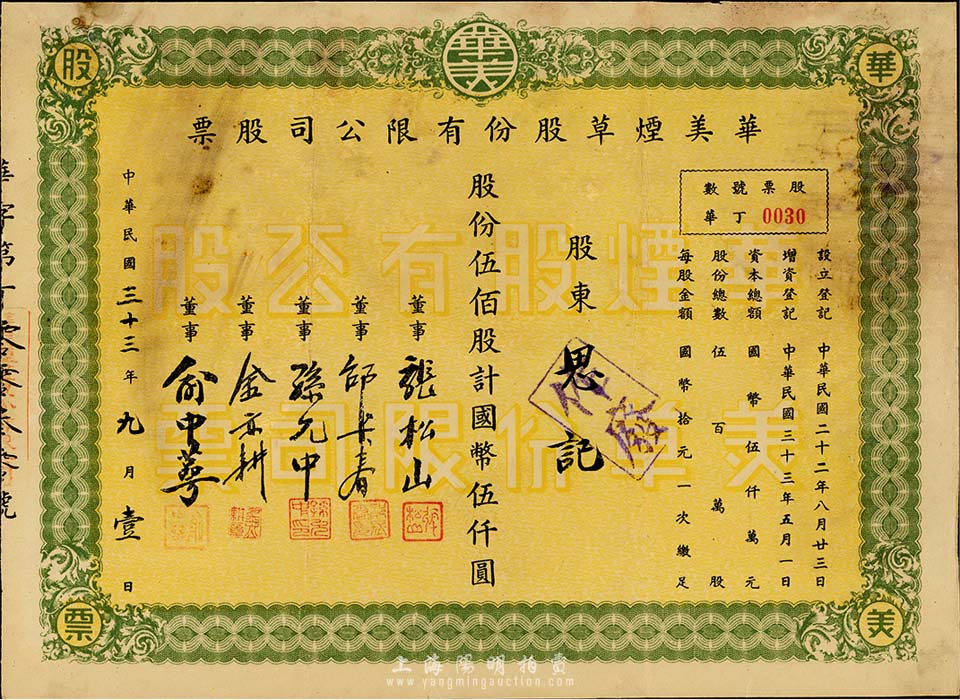 華美
股
華
票
美
華美煙草股份有限公司股票
股票號數
華丁 0030
設立登記 中華民國二十二年八月廿三日
增資登記 中華民國三十三年五月一日
資本總額 國幣伍仟萬元
股份總數 伍百萬股
每股金額 國幣拾元一次繳足
股東 思記
股份伍佰股計國幣伍仟圓
董事 張松山
董事
董事 孫元中
董事 金亦耕
董事 俞中萼
中華民國三十三年九月壹日
華煙股有公股
美草份限司票
上海陽明拍賣
www.yangmingauction.com